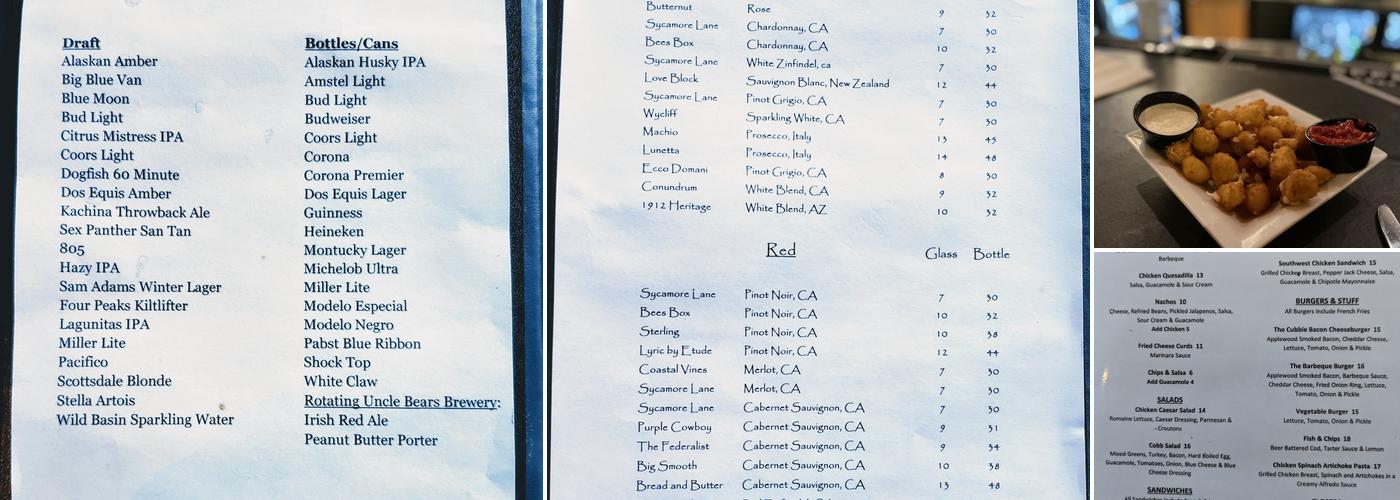 Draft
Alaskan Amber
Big Blue Van
Blue Moon
Bud Light
Citrus Mistress IPA
Coors Light
Dogfish 60 Minute
Dos Equis Amber
Kachina Throwback Ale
Sex Panther San Tan
805
Hazy IPA
Sam Adams Winter Lager
Four Peaks Kiltlifter
Lagunitas IPA
Miller Lite
Pacifico
Scottsdale Blonde
Stella Artois
Wild Basin Sparkling Water
Bottles/Cans
Alaskan Husky IPA
Amstel Light
Bud Light
Budweiser
Coors Light
Corona
Corona Premier
Dos Equis Lager
Guinness
Heineken
Montucky Lager
Michelob Ultra
Miller Lite
Modelo Especial
Modelo Negro
Pabst Blue Ribbon
Shock Top
White Claw
Rotating Uncle Bears Brewery:
Irish Red Ale
Peanut Butter Porter
Butternut Rose 9 32
Sycamore Lane Chardonnay, CA 7 30
Bees Box Chardonnay, CA 10 32
Sycamore Lane White Zinfindel, ca 7 30
Love Block Sauvignon Blanc, New Zealand 12 44
Sycamore Lane Pinot Grigio, CA 7 30
Wycliff Sparkling White, CA 7 30
Machio Prosecco, Italy 13 45
Lunetta Prosecco, Italy 14 48
Ecco Domani Pinot Grigio, CA 8 30
Conundrum White Blend, CA 9 32
1912 Heritage White Blend, AZ 10 32
Red Glass Bottle
Sycamore Lane Pinot Noir, CA 7 30
Bees Box Pinot Noir, CA 10 32
Sterling Pinot Noir, CA 10 38
Lyric by Etude Pinot Noir, CA 12 44
Coastal Vines Merlot, CA 7 30
Sycamore Lane Merlot, CA 7 30
Sycamore Lane Cabernet Sauvignon, CA 7 30
Purple Cowboy Cabernet Sauvignon, CA 9 31
The Federalist Cabernet Sauvignon, CA 9 34
Big Smooth Cabernet Sauvignon, CA 10 38
Bread and Butter Cabernet Sauvignon, CA 13 48
Barbeque
Chicken Quesadilla 13
Salsa, Guacamole & Sour Cream
Nachos 10
Cheese, Refried Beans, Pickled Jalapenos, Salsa,
Sour Cream & Guacamole
Add Chicken 5
Fried Cheese Curds 11
Marinara Sauce
Chips & Salsa 6
Add Guacamole 4
SALADS
Chicken Caesar Salad 14
Romaine Lettuce, Caesar Dressing, Parmesan &
Croutons
Cobb Salad 16
Mixed Greens, Turkey, Bacon, Hard Boiled Egg,
Guacamole, Tomatoes, Onion, Blue Cheese & Blue
Cheese Dressing
SANDWICHES
Southwest Chicken Sandwich 15
Grilled Chicken Breast, Pepper Jack Cheese, Salsa,
Guacamole & Chipotle Mayonnaise
BURGERS & STUFF
All Burgers Include French Fries
The Cubbie Bacon Cheeseburger 15
Applewood Smoked Bacon, Cheddar Cheese,
Lettuce, Tomato, Onion & Pickle
The Barbeque Burger 16
Applewood Smoked Bacon, Barbeque Sauce,
Cheddar Cheese, Fried Onion Ring, Lettuce,
Tomato, Onion & Pickle
Vegetable Burger 15
Lettuce, Tomato, Onion & Pickle
Fish & Chips 18
Beer Battered Cod, Tartar Sauce & Lemon
Chicken Spinach Artichoke Pasta 17
Grilled Chicken Breast, Spinach and Artichokes
Creamy Alfredo Sauce